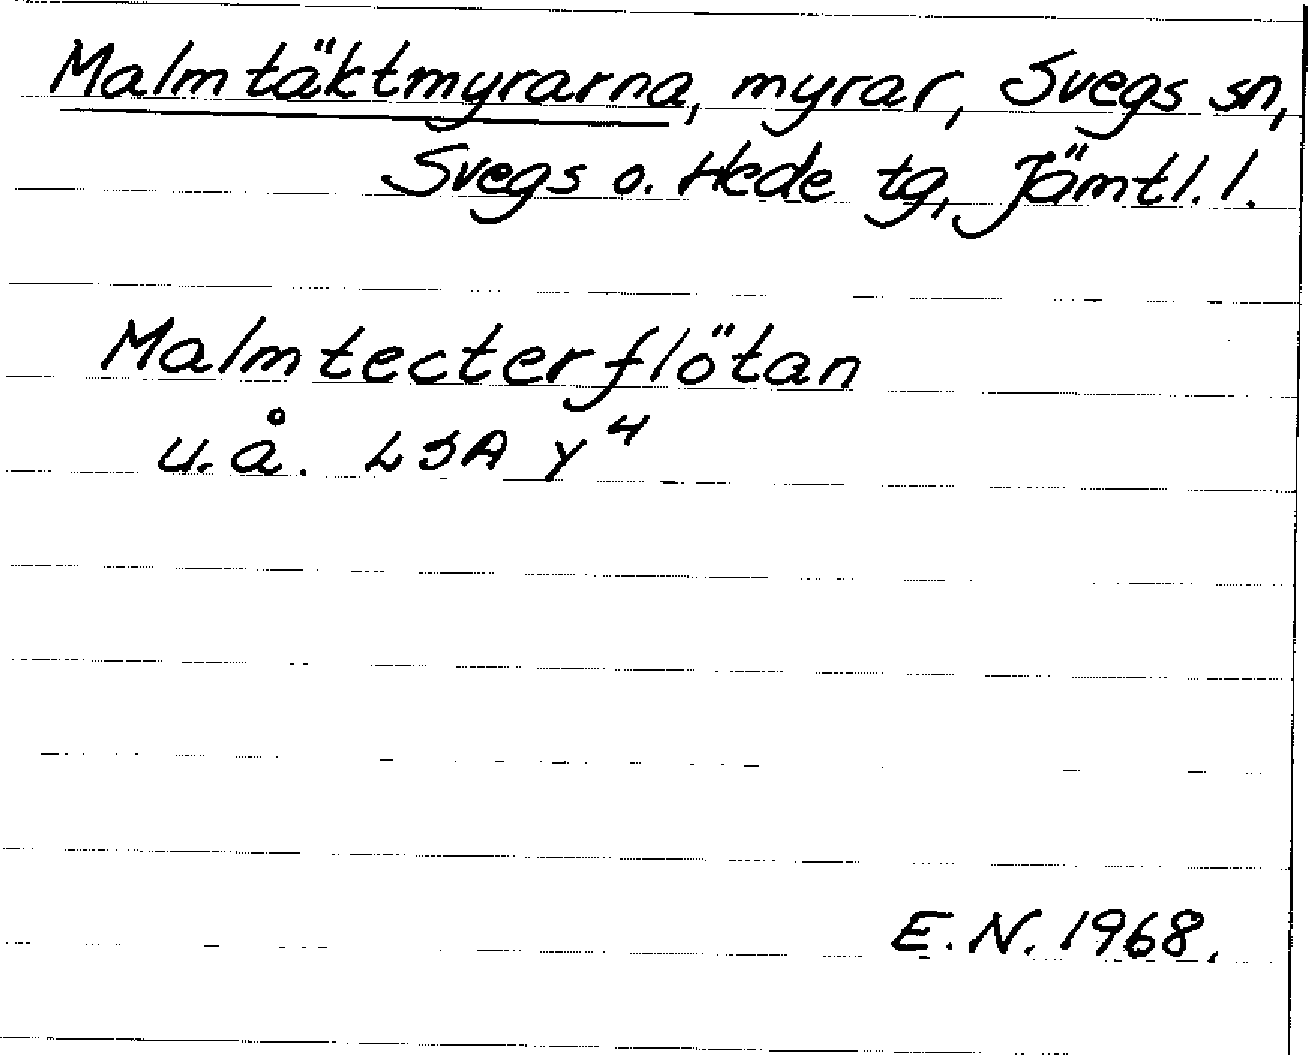 Malmtäktmyrarna, myrar, Svegs sn,
Svegs o. Hede tg, Jämtl. l.
Malmtecterflötan
u.å. LSA Y4
E.N. 1968.